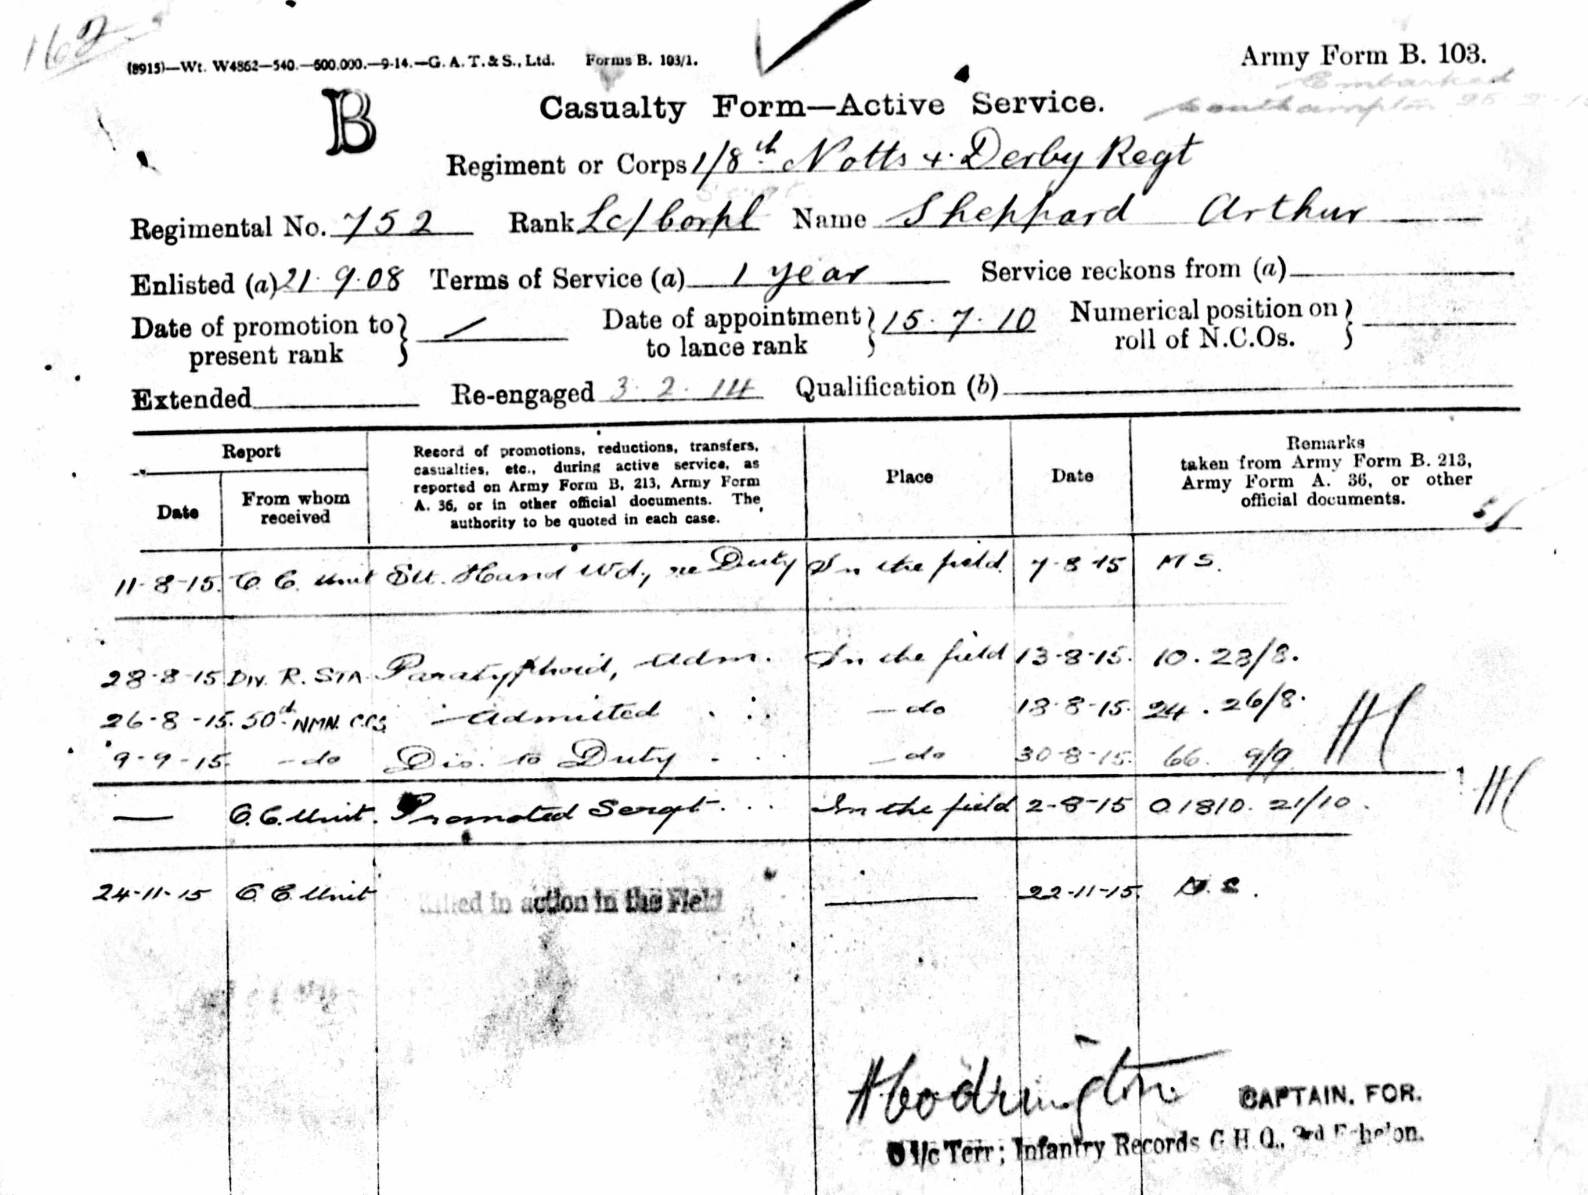 162
(8915)—Wt. W4862—540.—500.000.—9-14.—G. A. T. & S., Ltd. Forms B. 103/1.
Army Form B. 103.
Embarked
Southampton 25
B
Casualty Form—Active Service.
Regiment or Corps 1/8th Notts & Derby Regt
Regimental No. 752 Rank Lc/Corpl Name Sheppard Arthur
Enlisted (a) 21.9.08 Terms of Service (a) 1 year Service reckons from (a)
Date of promotion to present rank } Date of appointment to lance rank } 15.7.10 Numerical position on roll of N.C.Os. }
Extended Re-engaged 3.2.14 Qualification (b)
Report
Date
From whom received
Record of promotions, reductions, transfers,
casualties, etc., during active service, as
reported on Army Form B. 213, Army Form
A. 36, or in other official documents. The
authority to be quoted in each case.
Place
Date
Remarks
taken from Army Form B. 213,
Army Form A. 36, or other
official documents.
11-8-15. O. C. Unit Slt. Hand Wd, re Duty In the field 7-8-15 M S.
28-8-15 Div. R. Sta. Paratyphoid, Adm. In the field 13-8-15. 10. 28/8.
26-8-15. 50th NMN. C.C.S. —Admitted —do 18-8-15. 24. 26/8.
9-9-15. —do Dis. to Duty —do 30-8-15. 66. 9/9
— O. C. Unit. Promoted Sergt. In the field 2-8-15 O.1810. 21/10.
24-11-15 O. C. Unit Killed in action in the Field — 22-11-15.
CAPTAIN. FOR.
O i/c Terr; Infantry Records G.H.Q., 3rd Echelon.